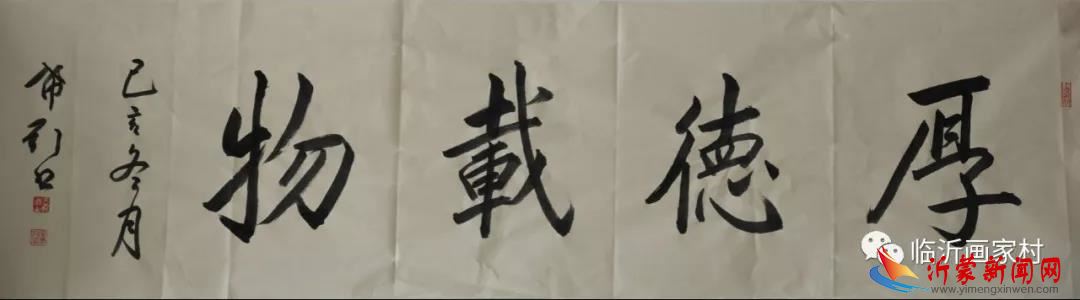 厚德載物
己亥冬月
临沂画家村
沂蒙新闻网
www.yimengxinwen.com